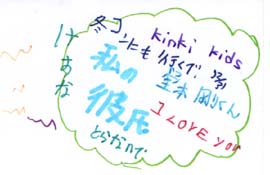 冬コ
ンにも行くぞ!
kinki kids
堂本剛くん
私の
彼氏
I LOVE YOU
とらないで